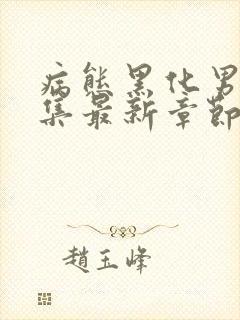 病態黑化男
集最新章節
趙玉峰